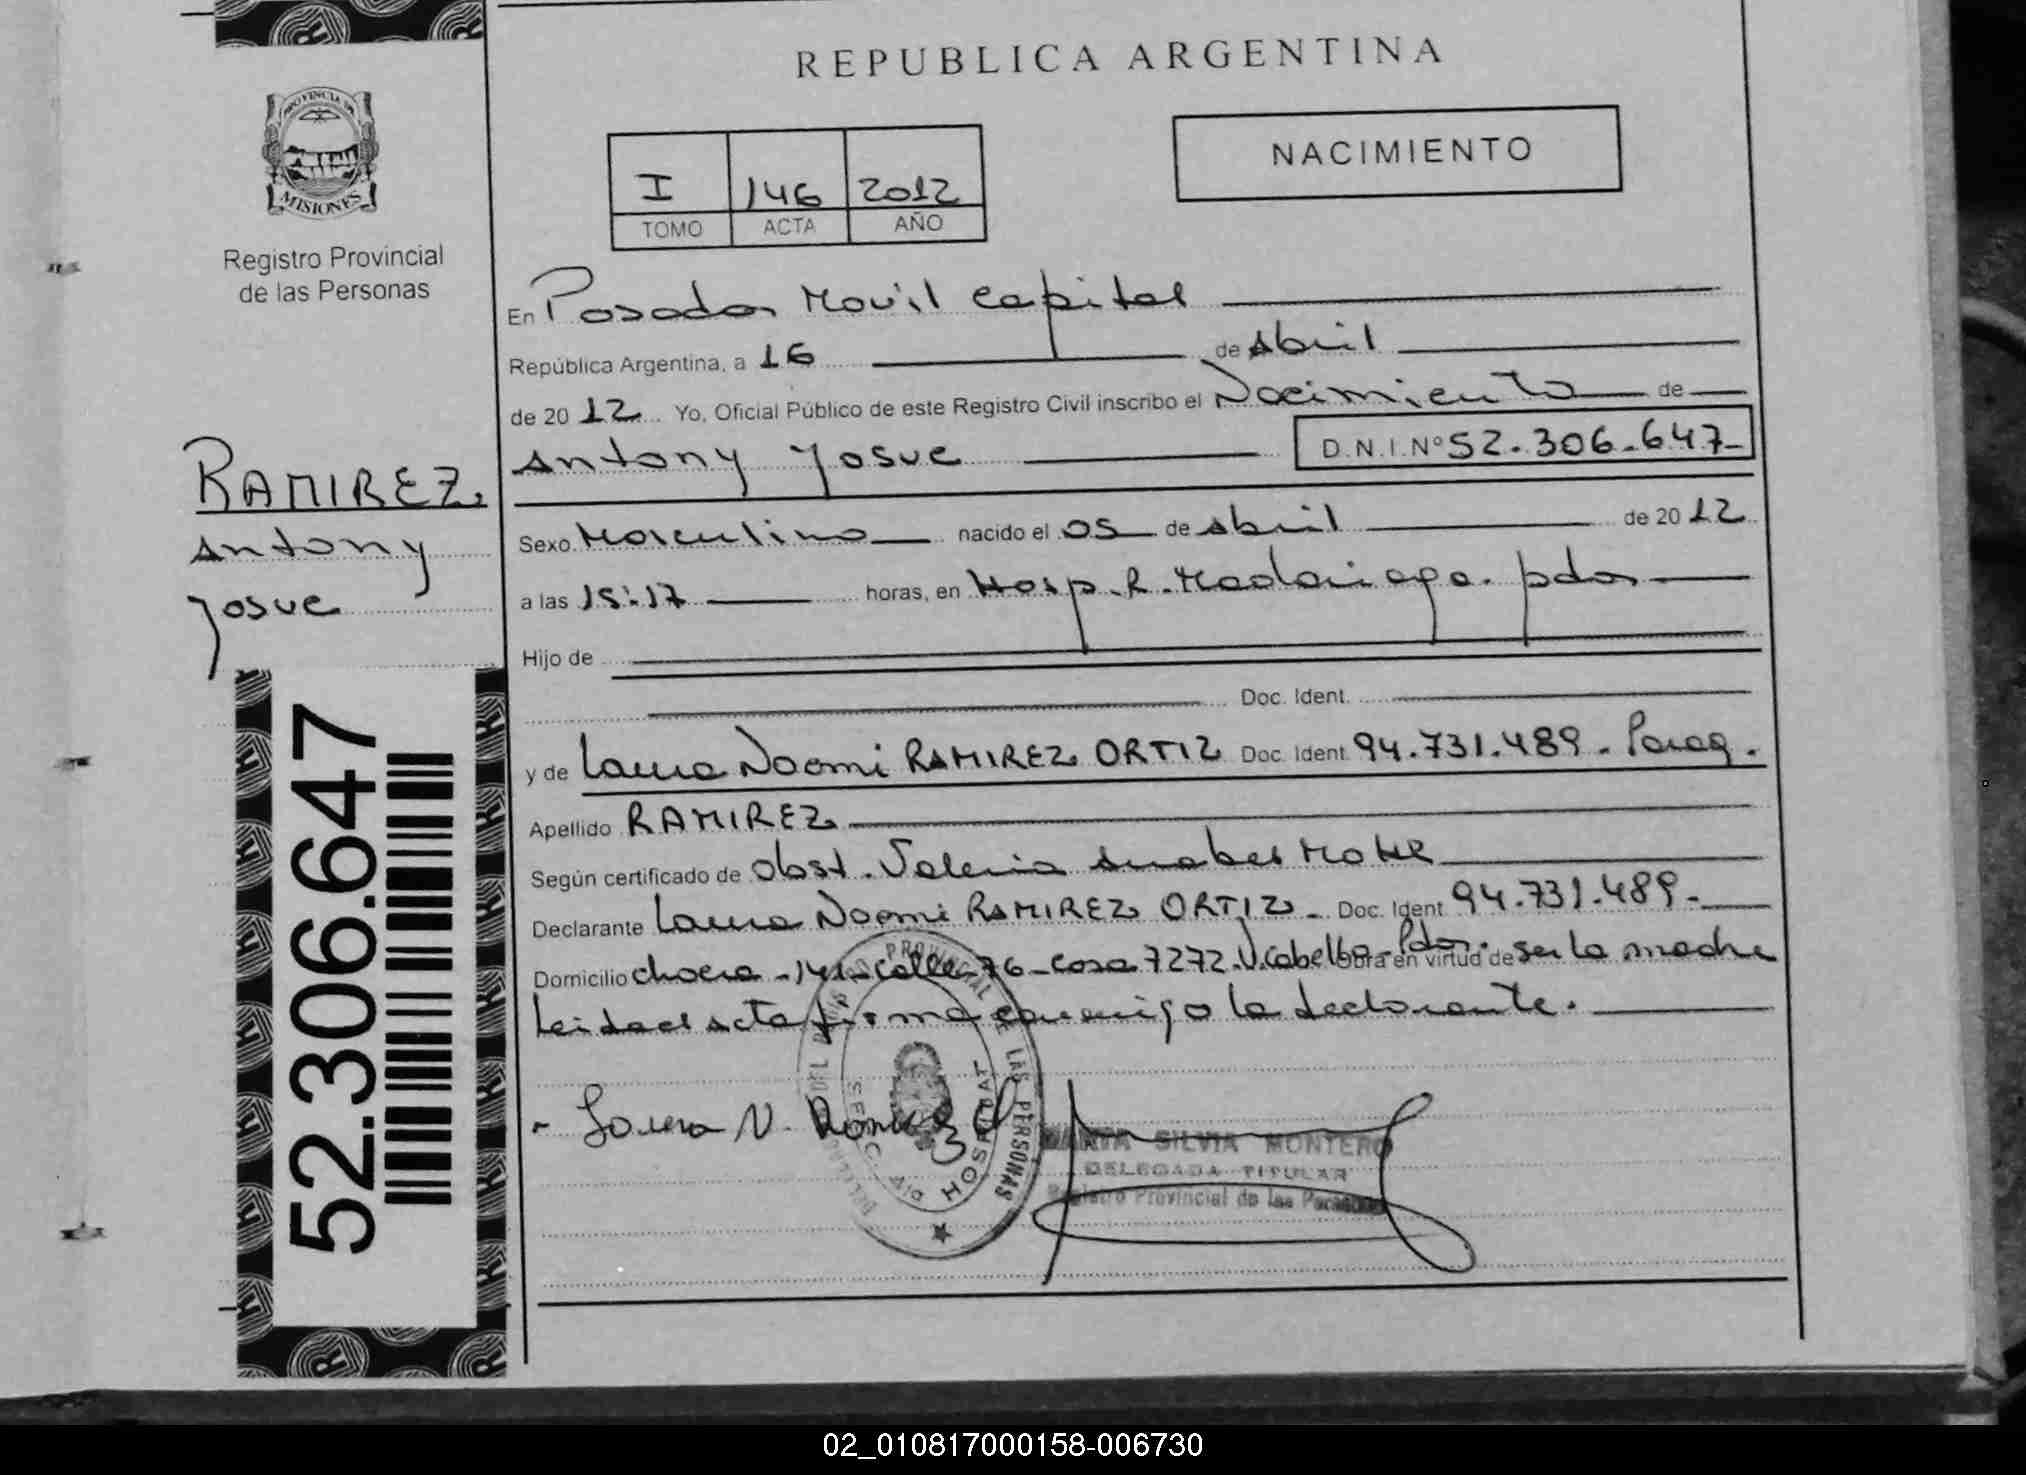 REPUBLICA ARGENTINA
PROVINCIA DE
MISIONES
Registro Provincial
de las Personas
NACIMIENTO
I 146 2012
TOMO ACTA AÑO
En Posadas Movil Capital
República Argentina, a 16 de Abril
de 20 12 Yo, Oficial Público de este Registro Civil inscribo el Nacimiento de
Antony Yosue D.N.I.Nº 52.306.647-
RAMIREZ
Antony
Yosue
Sexo Masculino nacido el 05 de Abril de 20 12
a las 15:17 horas, en Hosp. R. Madariaga. pdas
Hijo de
Doc. Ident.
y de Laura Noemi RAMIREZ ORTIZ Doc. Ident. 94.731.489. Parag.
Apellido RAMIREZ
Según certificado de Obst. Valeria
Declarante Laura Noemi RAMIREZ ORTIZ - Doc. Ident. 94.731.489.-
Domicilio chacra - 141 - calle 76 - casa 7272. V. Cabello - Pdas. Obra en virtud de ser la madre
Leida el acta firma conmigo la declarante.
52.306.647
PROVINCIAL DE LAS PERSONAS
HOSP. MAT
SILVIA MONTERO
DELEGADA TITULAR
Registro Provincial de las Personas
02_010817000158-006730